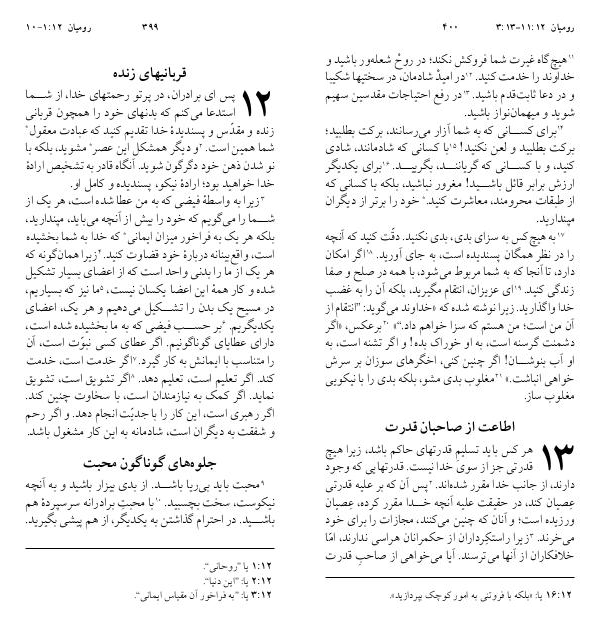 رومیان ۱:۱۲-۱۰
۳۹۹
قربانیهای زنده
۱۲ پس ای برادران، در پرتو رحمتهای خدا، از شما
استدعا می‌کنم که بدنهای خود را همچون قربانی
زنده و مقدّس و پسندیدۀ خدا تقدیم کنید که عبادت معقول*
شما همین است. ۲و دیگر همشکل این عصر* مشوید، بلکه با
نو شدن ذهن خود دگرگون شوید. آنگاه قادر به تشخیص ارادۀ
خدا خواهید بود؛ ارادۀ نیکو، پسندیده و کامل او.
۳زیرا به واسطۀ فیضی که به من عطا شده است، هر یک از
شما را می‌گویم که خود را بیش از آنچه می‌باید، مپندارید،
بلکه هر یک به فراخور میزان ایمانی* که خدا به شما بخشیده
است، واقع‌بینانه دربارۀ خود قضاوت کنید. ۴زیرا همان‌گونه که
هر یک از ما را بدنی واحد است که از اعضای بسیار تشکیل
شده و کار همۀ این اعضا یکسان نیست، ۵ما نیز که بسیاریم،
در مسیح یک بدن را تشکیل می‌دهیم و هر یک، اعضای
یکدیگریم. ۶بر حسب فیضی که به ما بخشیده شده است،
دارای عطایای گوناگونیم. اگر عطای کسی نبوّت است، آن
را متناسب با ایمانش به کار گیرد. ۷اگر خدمت است، خدمت
کند. اگر تعلیم است، تعلیم دهد. ۸اگر تشویق است، تشویق
نماید. اگر کمک به نیازمندان است، با سخاوت چنین کند.
اگر رهبری است، این کار را با جدیّت انجام دهد. و اگر رحم
و شفقت به دیگران است، شادمانه به این کار مشغول باشد.
جلوه‌های گوناگون محبت
۹محبت باید بی‌ریا باشد. از بدی بیزار باشید و به آنچه
نیکوست، سخت بچسبید. ۱۰با محبتِ برادرانه سرسپردۀ هم
باشید. در احترام گذاشتن به یکدیگر، از هم پیشی بگیرید.
۱:۱۲ یا ”روحانی“.
۲:۱۲ یا: ”این دنیا“.
۳:۱۲ یا: ”به فراخور آن مقیاس ایمانی“.
رومیان ۱۱:۱۲-۳:۱۳
۴۰۰
۱۱هیچ‌گاه غیرت شما فروکش نکند؛ در روحْ شعله‌ور باشید و
خداوند را خدمت کنید. ۱۲در امیدْ شادمان، در سختیها شکیبا
و در دعا ثابت‌قدم باشید. ۱۳در رفع احتیاجات مقدسین سهیم
شوید و میهمان‌نواز باشید.
۱۴برای کسانی که به شما آزار می‌رسانند، برکت بطلبید؛
برکت بطلبید و لعن نکنید! ۱۵با کسانی که شادمانند، شادی
کنید، و با کسانی که گریانند، بگریید. ۱۶برای یکدیگر
ارزش برابر قائل باشید! مغرور نباشید، بلکه با کسانی که
از طبقات محرومند، معاشرت کنید.* خود را برتر از دیگران
مپندارید.
۱۷به هیچ‌کس به سزای بدی، بدی نکنید. دقّت کنید که آنچه
را در نظر همگان پسندیده است، به جای آورید. ۱۸اگر امکان
دارد، تا آنجا که به شما مربوط می‌شود، با همه در صلح و صفا
زندگی کنید. ۱۹ای عزیزان، انتقام مگیرید، بلکه آن را به غضب
خدا واگذارید. زیرا نوشته شده که «خداوند می‌گوید: ”انتقام از
آنِ من است؛ من هستم که سزا خواهم داد.“» ۲۰برعکس، «اگر
دشمنت گرسنه است، به او خوراک بده! و اگر تشنه است، به
او آب بنوشان! اگر چنین کنی، اخگرهای سوزان بر سرش
خواهی انباشت.» ۲۱مغلوب بدی مشو، بلکه بدی را با نیکویی
مغلوب ساز.
اطاعت از صاحبان قدرت
۱۳ هر کس باید تسلیم قدرتهای حاکم باشد، زیرا هیچ
قدرتی جز از سوی خدا نیست. قدرتهایی که وجود
دارند، از جانب خدا مقرر شده‌اند. ۲پس آن که بر علیه قدرتی
عِصیان کند، در حقیقت علیه آنچه خدا مقرر کرده، عصیان
ورزیده است؛ و آنان که چنین می‌کنند، مجازات را برای خود
می‌خرند. ۳زیرا راستکرداران از حکمرانان هراسی ندارند، امّا
خلافکاران از آنها می‌ترسند. آیا می‌خواهی از صاحبِ قدرت
۱۶:۱۲ یا: «بلکه با فروتنی به امور کوچک بپردازید».